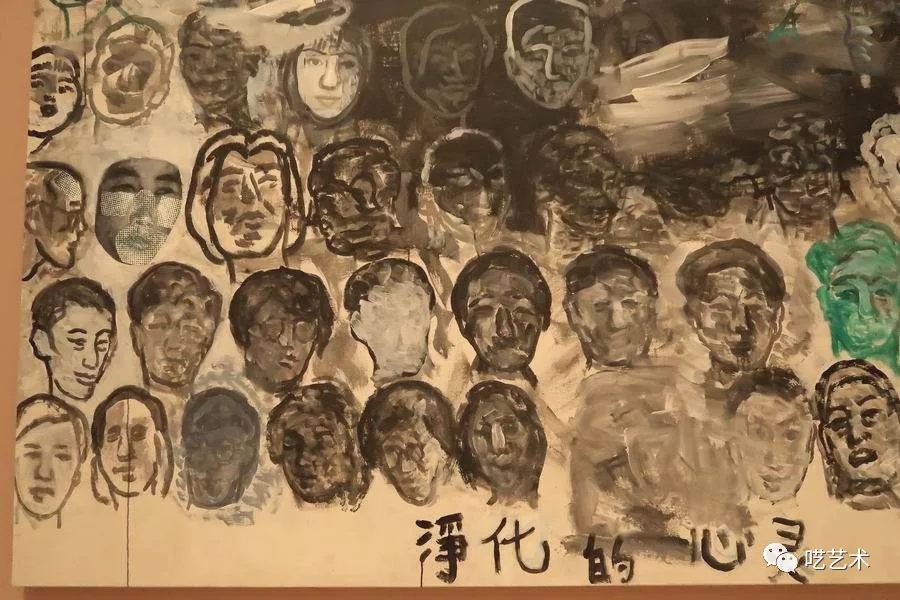 淨化的心灵
哎艺术